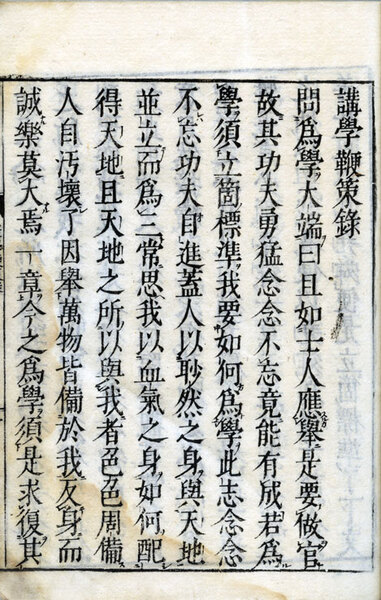 講學鞭策錄
問爲學大端曰且如士人應舉是要做官
故其功夫勇猛念念不忘竟能有成若爲
學須立箇標準我要如何爲學此志念念
不忘功夫自進蓋人以眇然之身與天地
並立而爲三常思我以血氣之身如何配
得天地且天地之所以與我者色色周備
人自汚壞了因舉萬物皆備於我反身而
誠樂莫大焉一章今之爲學須是求復其